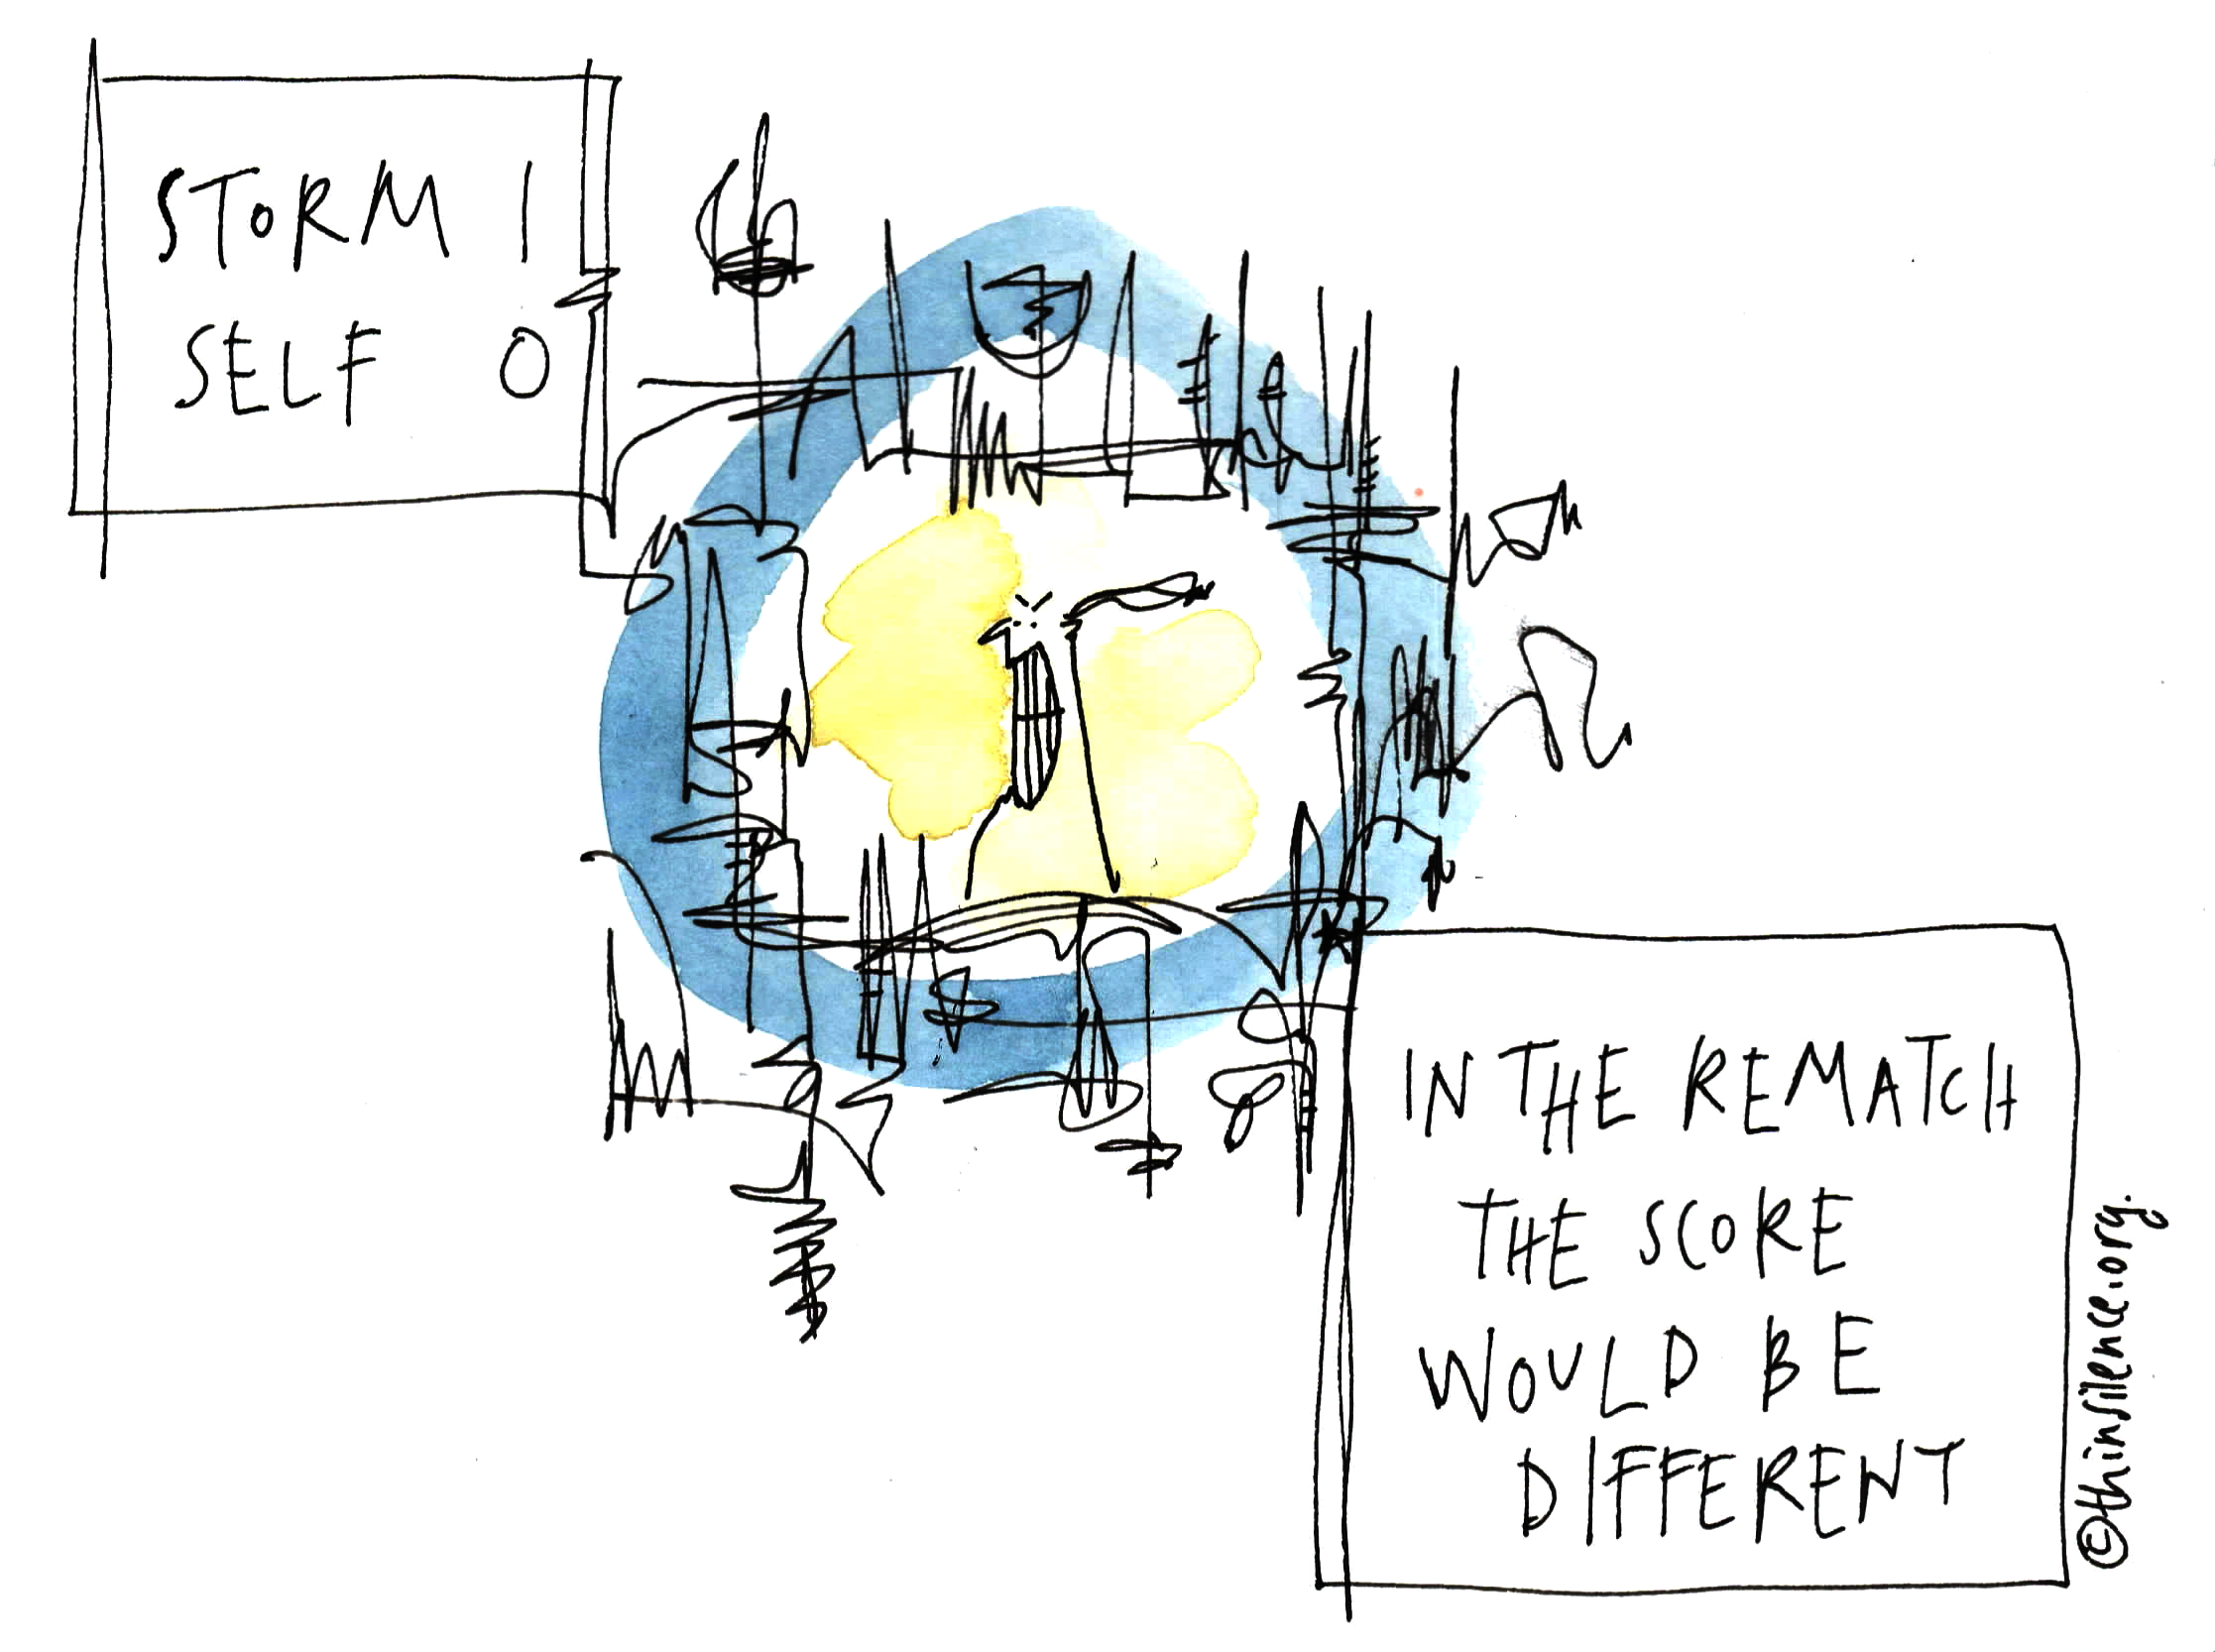 STORM 1
SELF 0
IN THE REMATCH
THE SCORE
WOULD BE
DIFFERENT
©thinsilence.org.